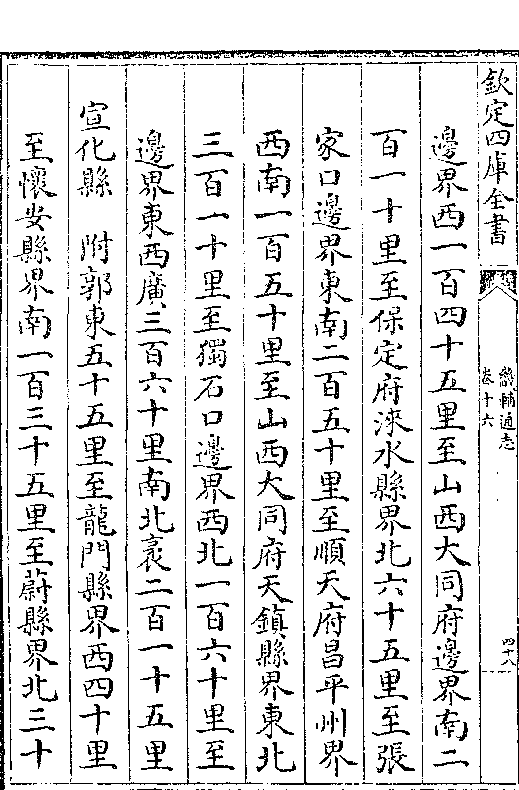 欽定四庫全書
畿輔通志
卷十六
四十八
邊界西一百四十五里至山西大同府邊界南二
百一十里至保定府淶水縣界北六十五里至張
家口邊界東南二百五十里至順天府昌平州界
西南一百五十里至山西大同府天鎮縣界東北
三百一十里至獨石口邊界西北一百六十里至
邊界東西廣三百六十里南北袤二百一十五里
宣化縣 附郭東五十五里至龍門縣界西四十里
至懷安縣界南一百三十五里至蔚縣界北三十